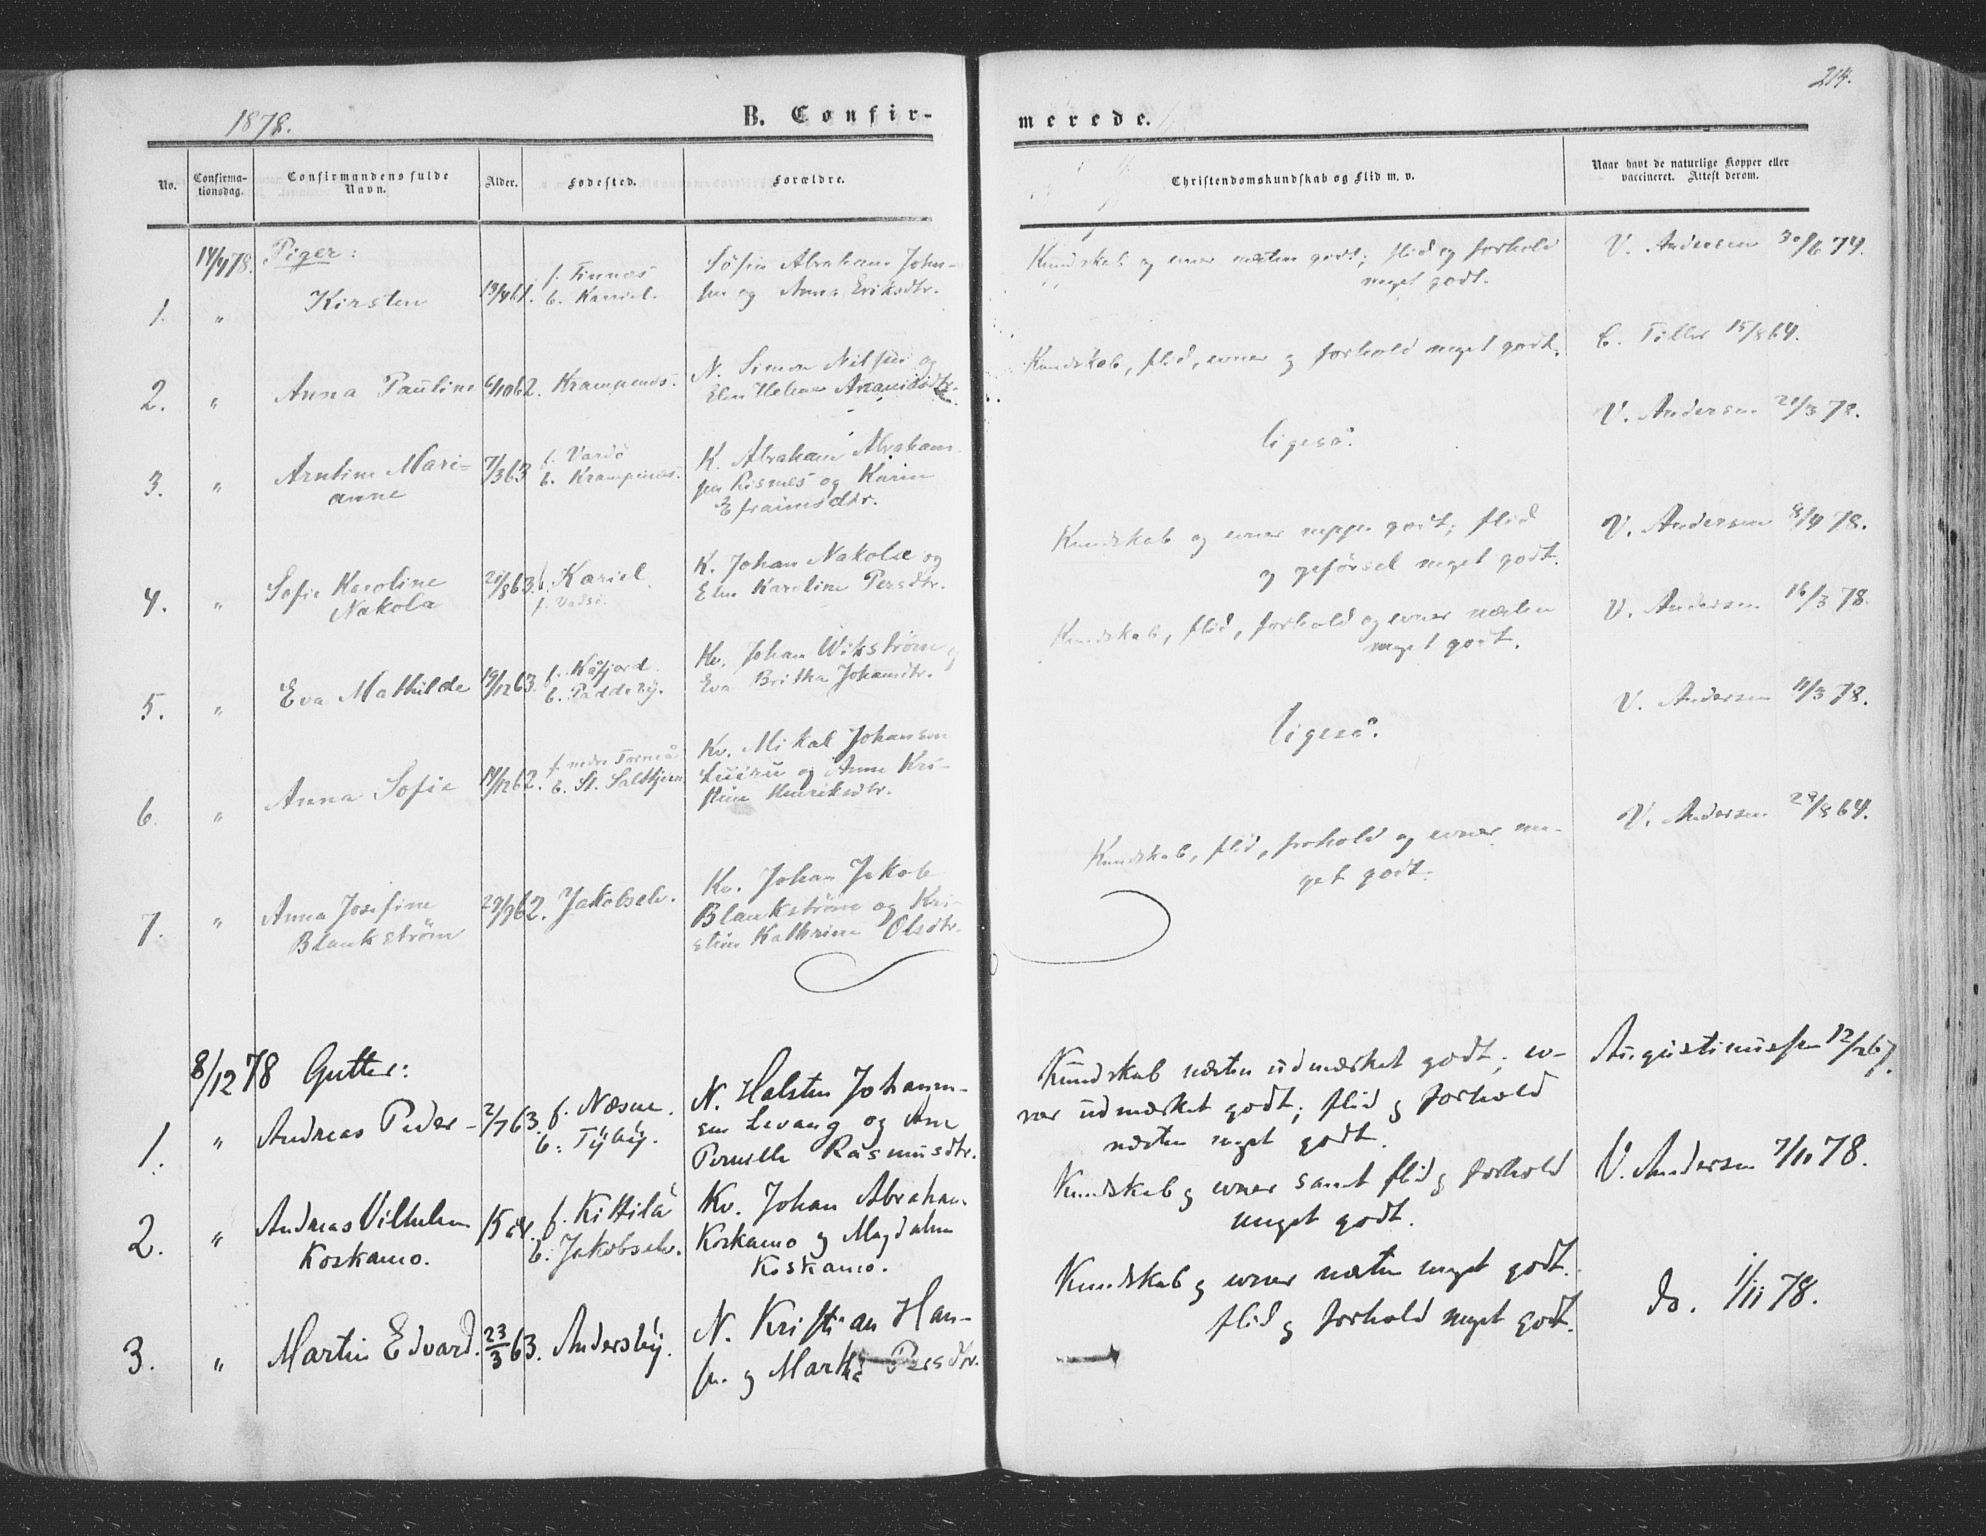 214.
1878.
B. Confir-
merede.
No.
Confirma-
tionsdag.
Confirmandens fulde
Navn.
Alder.
Fødested.
Forældre.
Christendomskundskab og Flid m. v.
Naar havt de naturlige Kopper eller
vaccineret. Attest derom.
14/4 78. Piger:
1. " Kirsten 13/4 61. f. Finnes
b. Kariel.
Søfin Abraham John-
sen og Anna Eriksdtr.
Kundskab og evner næsten godt; flid og forhold
meget godt.
V. Andersen 30/6 74.
2. " Anna Pauline 6/10 62. Krampenes.
N. Simon Nilsen og
Elen Helene Ananiasdtr.
Kundskab, flid, evner og forhold meget godt.
C. Tiller 15/8 64.
3. " Arntine Mari-
anne
7/3 63 f. Vardö
b. Krampenes.
K. Abraham Abraham-
sen Risnes og Karin
Efraimsdtr.
ligeså.
V. Andersen 21/3 78.
4. " Sofie Karoline
Nakola
21/8 63. b. Kariel.
f. Vadsö.
K. Johan Nakola og
Elen Karoline Persdtr.
Kundskab og evner neppe godt; flid
og opførsel meget godt.
V. Andersen 8/4 78.
5. " Eva Mathilde 19/12 63. f. Kåfjord.
b. Paddeby.
Kv. Johan Wikström og
Eva Britha Johansdtr.
Kundskab, flid, forhold og evner næsten
meget godt.
V. Andersen 16/3 78.
6. " Anna Sofie 14/12 62. f. nedre Torneå
b. St. Saltkjern
Kv. Mikal Johansen
og Anne Kri-
stine Henriksdtr.
ligeså.
V. Andersen 11/3 78.
7. " Anna Josefine
Blankström
29/9 62. Jakobselv.
Kv. Johan Jakob
Blankström og Kri-
stine Kathrine Olsdtr.
Kundskab, flid, forhold og evner me-
get godt.
V. Andersen 29/8 64.
8/12 78 Gutter:
1. " Andreas Peder 2/7 63. f. Næsne.
b. Tyby.
N. Halsten Johann-
sen Levang og Ane
Pernille Rasmusdtr.
Kundskab næsten udmærket godt; ev-
ner udmærket godt; flid og forhold
næsten meget godt.
Augustinussen 12/2 67.
2. " Andreas Vilhelm
Koskamo.
15 f. Kittilä
b. Jakobselv.
Kv. Johan Abraham
Koskamo og Magdalene
Koskamo.
Kundskab og evner samt flid og forhold
meget godt.
V. Andersen 7/11 78.
3. " Martin Edvard. 23/3 63. Andersby.
N. Kristian Han-
sen og Martha Persdtr.
Kundskab og evner næsten meget godt.
flid og forhold meget godt.
do. 1/11 78.